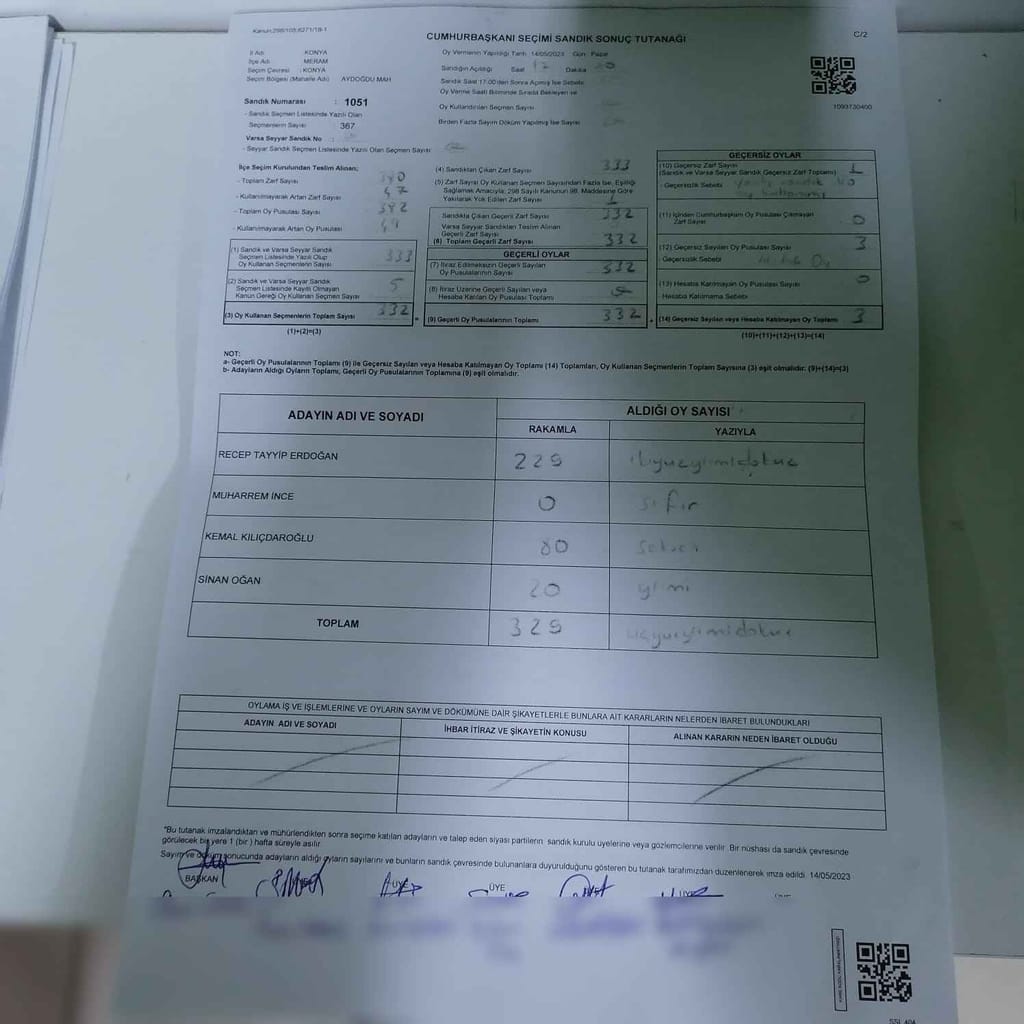 Kanun:298/105;6271/18-1
C/2
CUMHURBAŞKANI SEÇİMİ SANDIK SONUÇ TUTANAĞI
İl Adı : KONYA
İlçe Adı : MERAM
Seçim Çevresi : KONYA
Seçim Bölgesi (Mahalle Adı) AYDOĞDU MAH
Sandık Numarası : 1051
- Sandık Seçmen Listesinde Yazılı Olan
Seçmenlerin Sayısı : 367
Varsa Seyyar Sandık No :
- Seyyar Sandık Seçmen Listesinde Yazılı Olan Seçmen Sayısı:
Oy Vermenin Yapıldığı Tarih 14/05/2023 Gün Pazar
Sandığın Açıldığı Saat 17 Dakika
Sandık Saat 17:00'den Sonra Açılmış İse Sebebi
Oy Verme Saati Bitiminde Sırada Bekleyen ve
Oy Kullandırılan Seçmen Sayısı
Birden Fazla Sayım Döküm Yapılmış İse Sayısı
1093730400
İlçe Seçim Kurulundan Teslim Alınan;
- Toplam Zarf Sayısı 380
- Kullanılmayarak Artan Zarf Sayısı 47
- Toplam Oy Pusulası Sayısı 382
- Kullanılmayarak Artan Oy Pusulası 49
(1) Sandık ve Varsa Seyyar Sandık
Seçmen Listesinde Yazılı Olup
Oy Kullanan Seçmenlerin Sayısı 333
(2) Sandık ve Varsa Seyyar Sandık
Seçmen Listesinde Kayıtlı Olmayan
Kanun Gereği Oy Kullanan Seçmen Sayısı 5
(3) Oy Kullanan Seçmenlerin Toplam Sayısı 332
(1)+(2)=(3)
(4) Sandıktan Çıkan Zarf Sayısı 333
(5) Zarf Sayısı Oy Kullanan Seçmen Sayısından Fazla İse, Eşitliği
Sağlamak Amacıyla; 298 Sayılı Kanunun 98. Maddesine Göre
Yakılarak Yok Edilen Zarf Sayısı 1
Sandıkta Çıkan Geçerli Zarf Sayısı 332
Varsa Seyyar Sandıktan Teslim Alınan
Geçerli Zarf Sayısı
(6) Toplam Geçerli Zarf Sayısı 332
GEÇERLİ OYLAR
(7) İtiraz Edilmeksizin Geçerli Sayılan
Oy Pusulalarının Sayısı 332
(8) İtiraz Üzerine Geçerli Sayılan veya
Hesaba Katılan Oy Pusulası Toplamı
(9) Geçerli Oy Pusulalarının Toplamı 332
GEÇERSİZ OYLAR
(10) Geçersiz Zarf Sayısı
(Sandık ve Varsa Seyyar Sandık Geçersiz Zarf Toplamı) 1
- Geçersizlik Sebebi
(11) İçinden Cumhurbaşkanı Oy Pusulası Çıkmayan
Zarf Sayısı 0
(12) Geçersiz Sayılan Oy Pusulası Sayısı 3
- Geçersizlik Sebebi Oy
(13) Hesaba Katılmayan Oy Pusulası Sayısı 0
- Hesaba Katılmama Sebebi
(14) Geçersiz Sayılan veya Hesaba Katılmayan Oy Toplamı 3
(10)+(11)+(12)+(13)=(14)
NOT:
a- Geçerli Oy Pusulalarının Toplamı (9) ile Geçersiz Sayılan veya Hesaba Katılmayan Oy Toplamı (14) Toplamları, Oy Kullanan Seçmenlerin Toplam Sayısına (3) eşit olmalıdır. (9)+(14)=(3)
b- Adayların Aldığı Oyların Toplamı, Geçerli Oy Pusulalarının Toplamına (9) eşit olmalıdır.
ADAYIN ADI VE SOYADI ALDIĞI OY SAYISI
RAKAMLA YAZIYLA
RECEP TAYYİP ERDOĞAN 229 ikiyüzyirmidokuz
MUHARREM İNCE 0 sıfır
KEMAL KILIÇDAROĞLU 80 seksen
SİNAN OĞAN 20 yirmi
TOPLAM 329 üçyüzyirmidokuz
OYLAMA İŞ VE İŞLEMLERİNE VE OYLARIN SAYIM VE DÖKÜMÜNE DAİR ŞİKAYETLERLE BUNLARA AİT KARARLARIN NELERDEN İBARET BULUNDUKLARI
ADAYIN ADI VE SOYADI İHBAR İTİRAZ VE ŞİKAYETİN KONUSU ALINAN KARARIN NEDEN İBARET OLDUĞU
"Bu tutanak imzalandıktan ve mühürlendikten sonra seçime katılan adayların ve talep eden siyasi partilerin sandık kurulu üyelerine veya gözlemcilerine verilir. Bir nüshası da sandık çevresinde
görülecek bir yere 1 (bir) hafta süreyle asılır.
Sayım ve döküm sonucunda adayların aldığı oyların sayılarını ve bunların sandık çevresinde bulunanlara duyurulduğunu gösteren bu tutanak tarafımızdan düzenlenerek imza edildi. 14/05/2023
BAŞKAN ÜYE ÜYE ÜYE